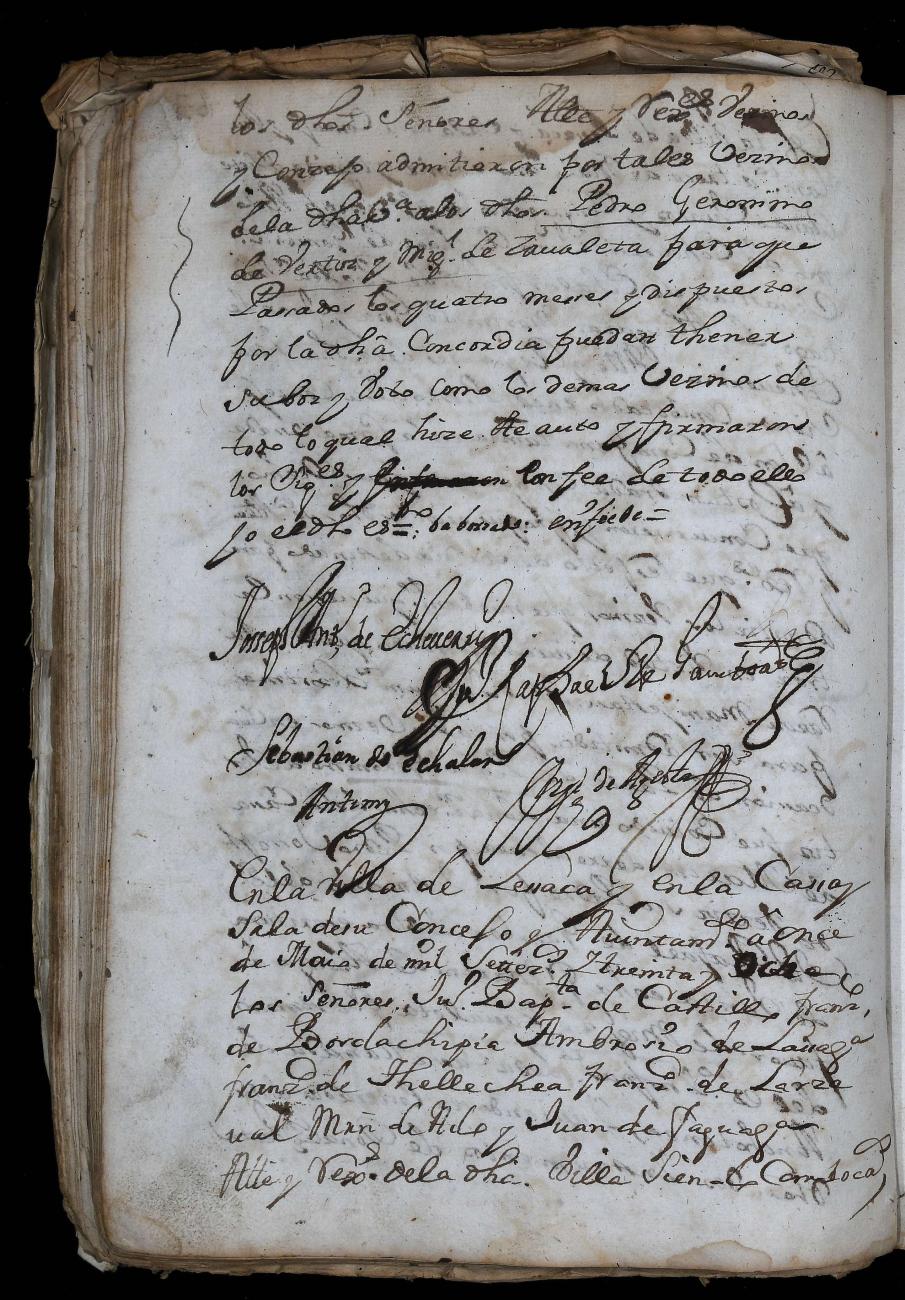 los dhos Señores Alle y Rexres Vezinos
y Conzejo admitieron por tales Vezinos
dela dha Va alos dhos Pedro Geronimo
de Vertiz y Migl de Zavaleta para que
Passados los quatro messes y dispuestos
por la dha Concordia puedan thener
su boz y Voto como los demas Vezinos de
todo lo qual hize Ate auto y ffirmaron
los sigtes y en fee de todo ello
yo el dho essno
Joseph Antto de Echeverria
Rafael de Gamboa
Sebastian de Echalar
Antemy
En la Villa de Lessaca y en la Cassa y
Sala de su Concejo y Aiuntamto a once
de Maio de mil Setteztos y treinta y Ocho
los Señores Jun Bapta de Castillo, franco
de Bordachipia Ambrosio de Larraga
franco de Thellechea franco de Larze
ual Mrn de Alo y Juan de Taguaga
Alle y Rexres dela dha Villa Siendo Combocados